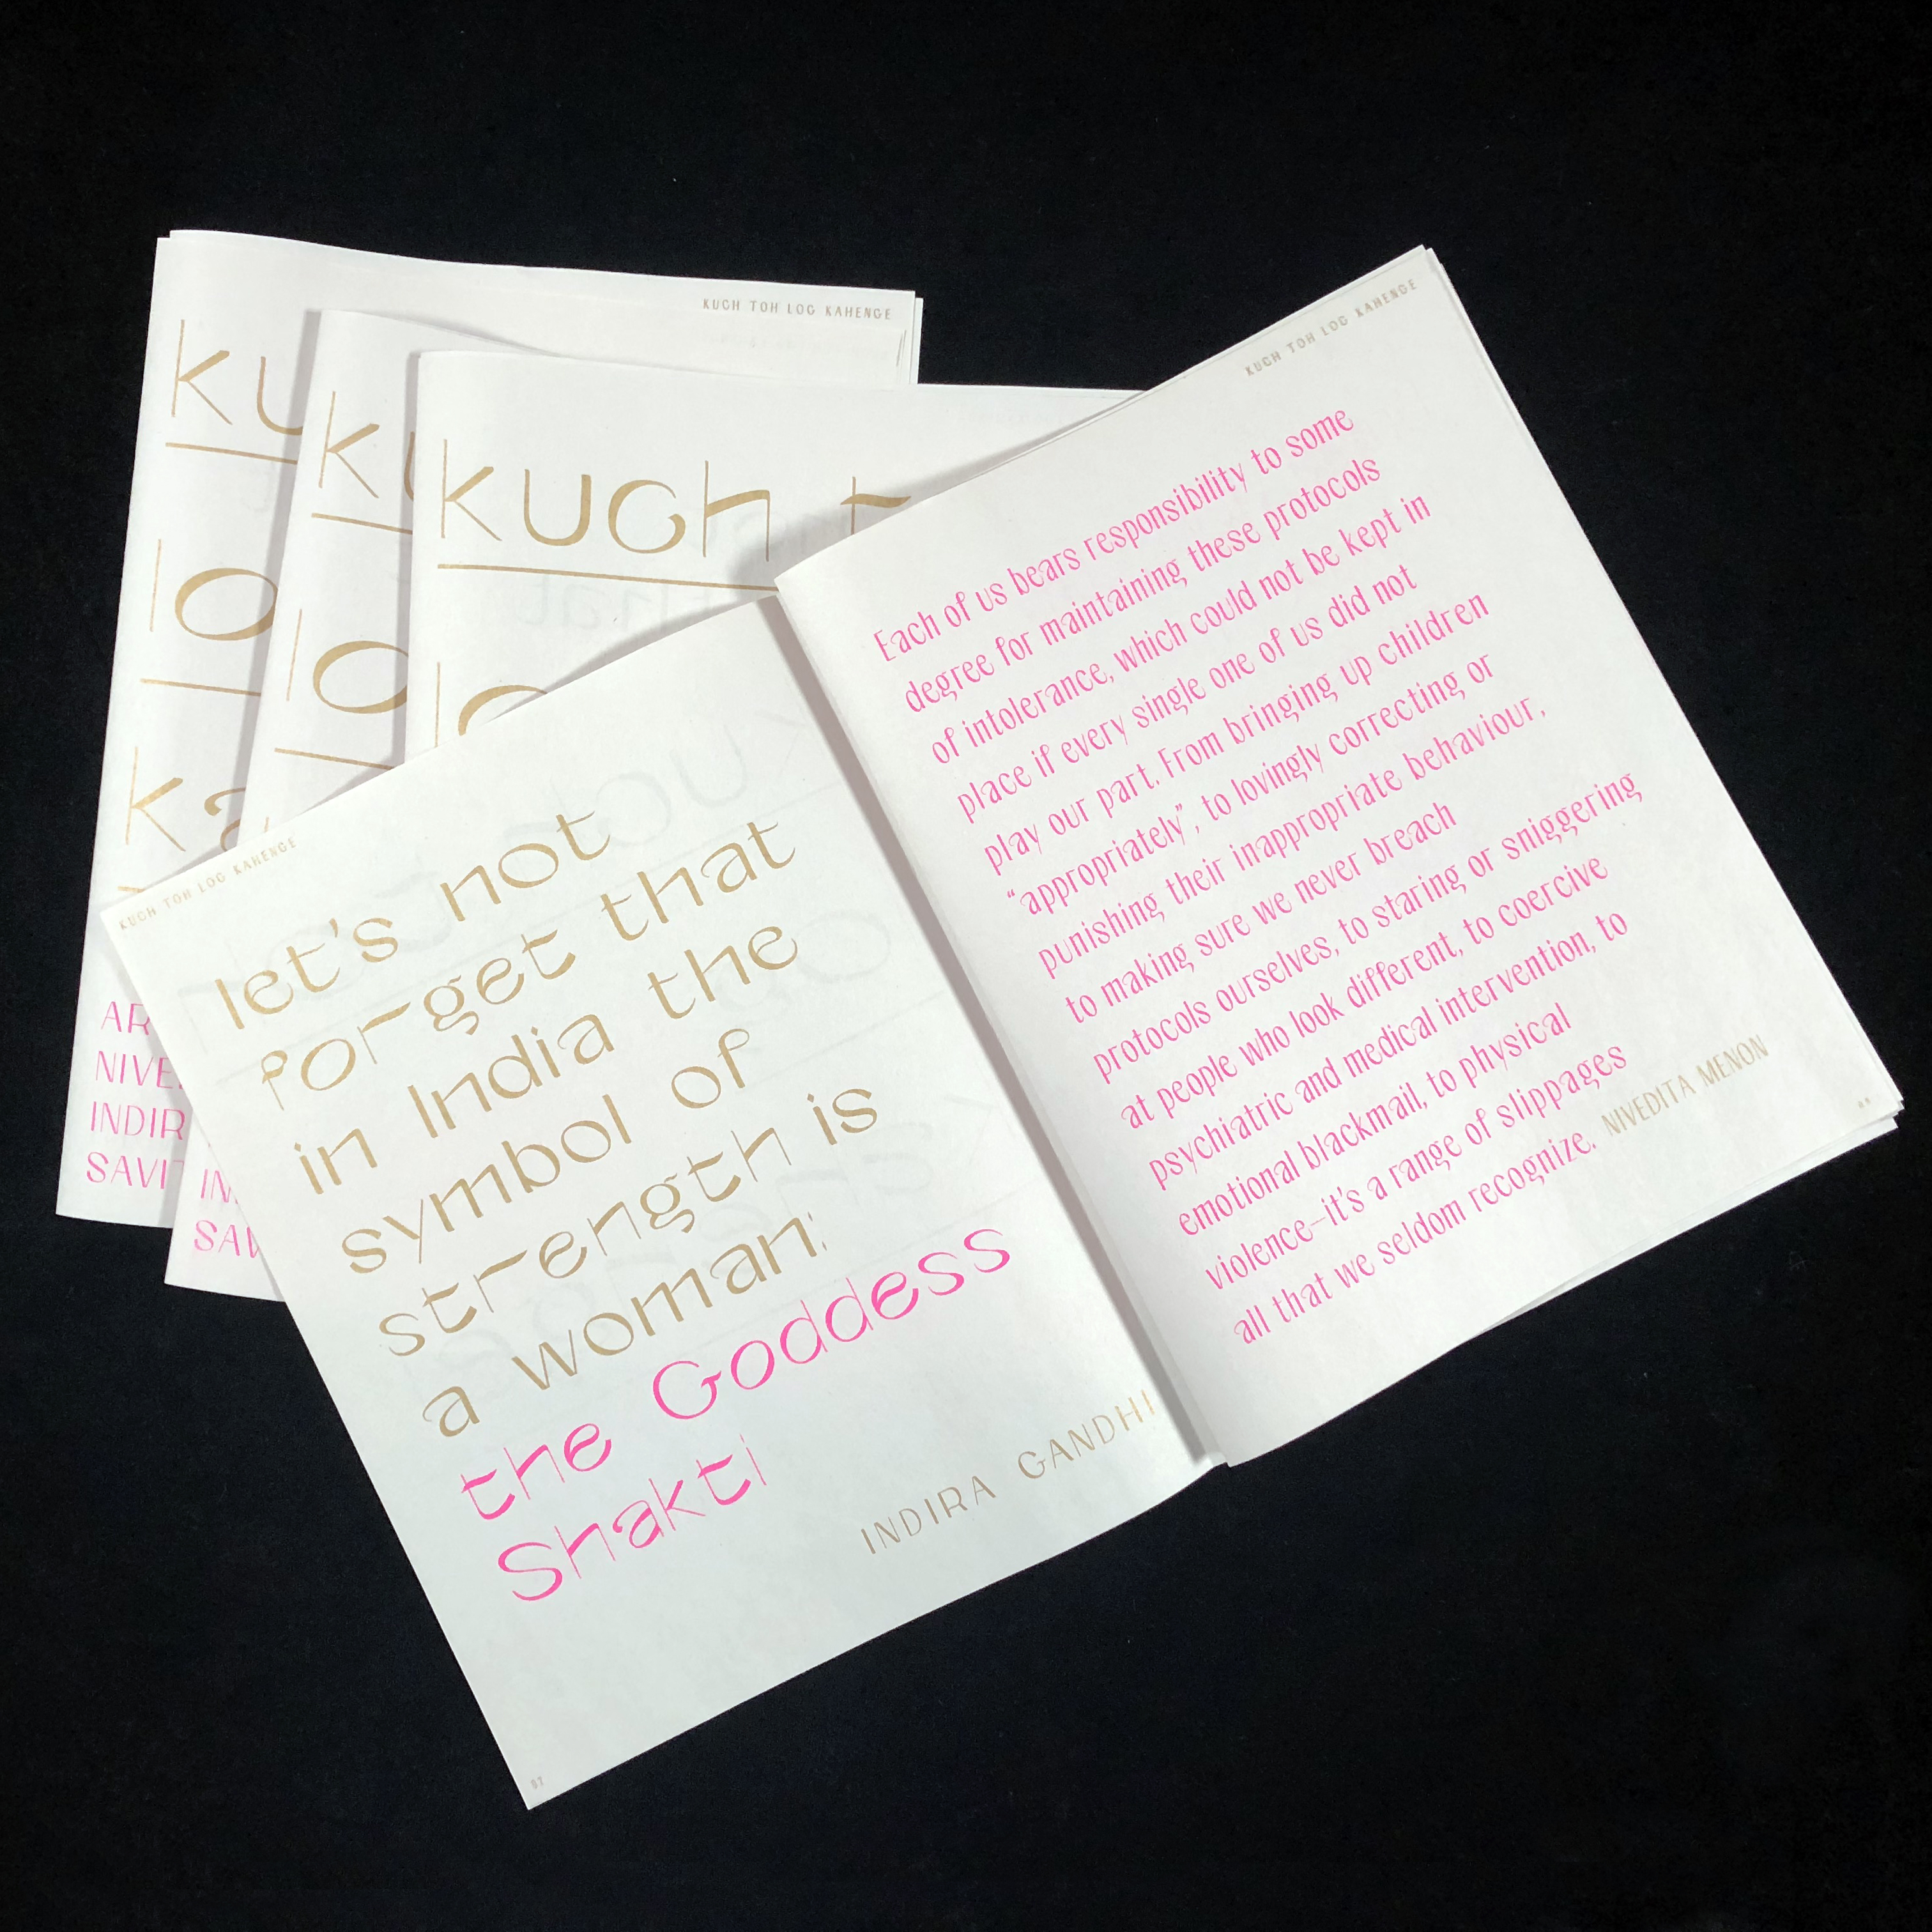 KUCH TOH LOG KAHENGE
ku
lo
ka
AR
NIVE
INDIR
SAVIT
ku
lo
IN
SAV
kuch t
lo
KUCH TOH LOG KAHENGE
let's not
forget that
in India the
symbol of
strength is
a woman:
the Goddess
Shakti
INDIRA GANDHI
07
KUCH TOH LOG KAHENGE
Each of us bears responsibility to some
degree for maintaining these protocols
of intolerance, which could not be kept in
place if every single one of us did not
play our part. From bringing up children
“appropriately”, to lovingly correcting or
punishing their inappropriate behaviour,
to making sure we never breach
protocols ourselves, to staring or sniggering
at people who look different, to coercive
psychiatric and medical intervention, to
emotional blackmail, to physical
violence—it's a range of slippages
all that we seldom recognize. NIVEDITA MENON